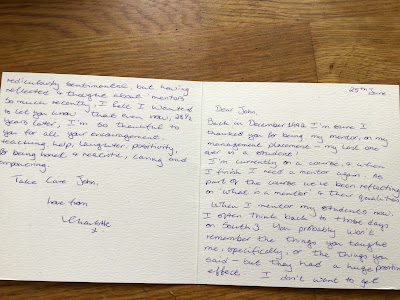 25th June
Dear John,
Back in December 1992 I'm sure I
thanked you for being my mentor, on my
management placement - my last one
ever as a student!
I'm currently on a course, & when
I finish I need a mentor again. As
part of the course we've been reflecting
on 'what is a mentor' & their qualities.
When I mentor my students now,
I often think back to those days
on South 3. You probably won't
remember the things you taught
me, specifically, or the things you
said - but they had a huge positive
effect. I don't want to get
rediculously sentimental, but having
reflected & thought about 'mentors'
so much recently, I felt I wanted
to let you know that even now, 25½
years later, I'm so thankful to
you for all your encouragement,
teaching, help, laughter, positivity,
for being honest & realistic, caring and
empowering.
Take Care John,
love from
Charlotte
x